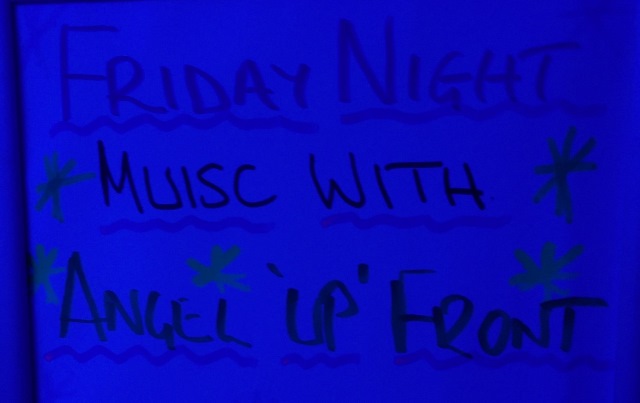 FRIDAY NIGHT
MUISC WITH
ANGEL 'UP' FRONT